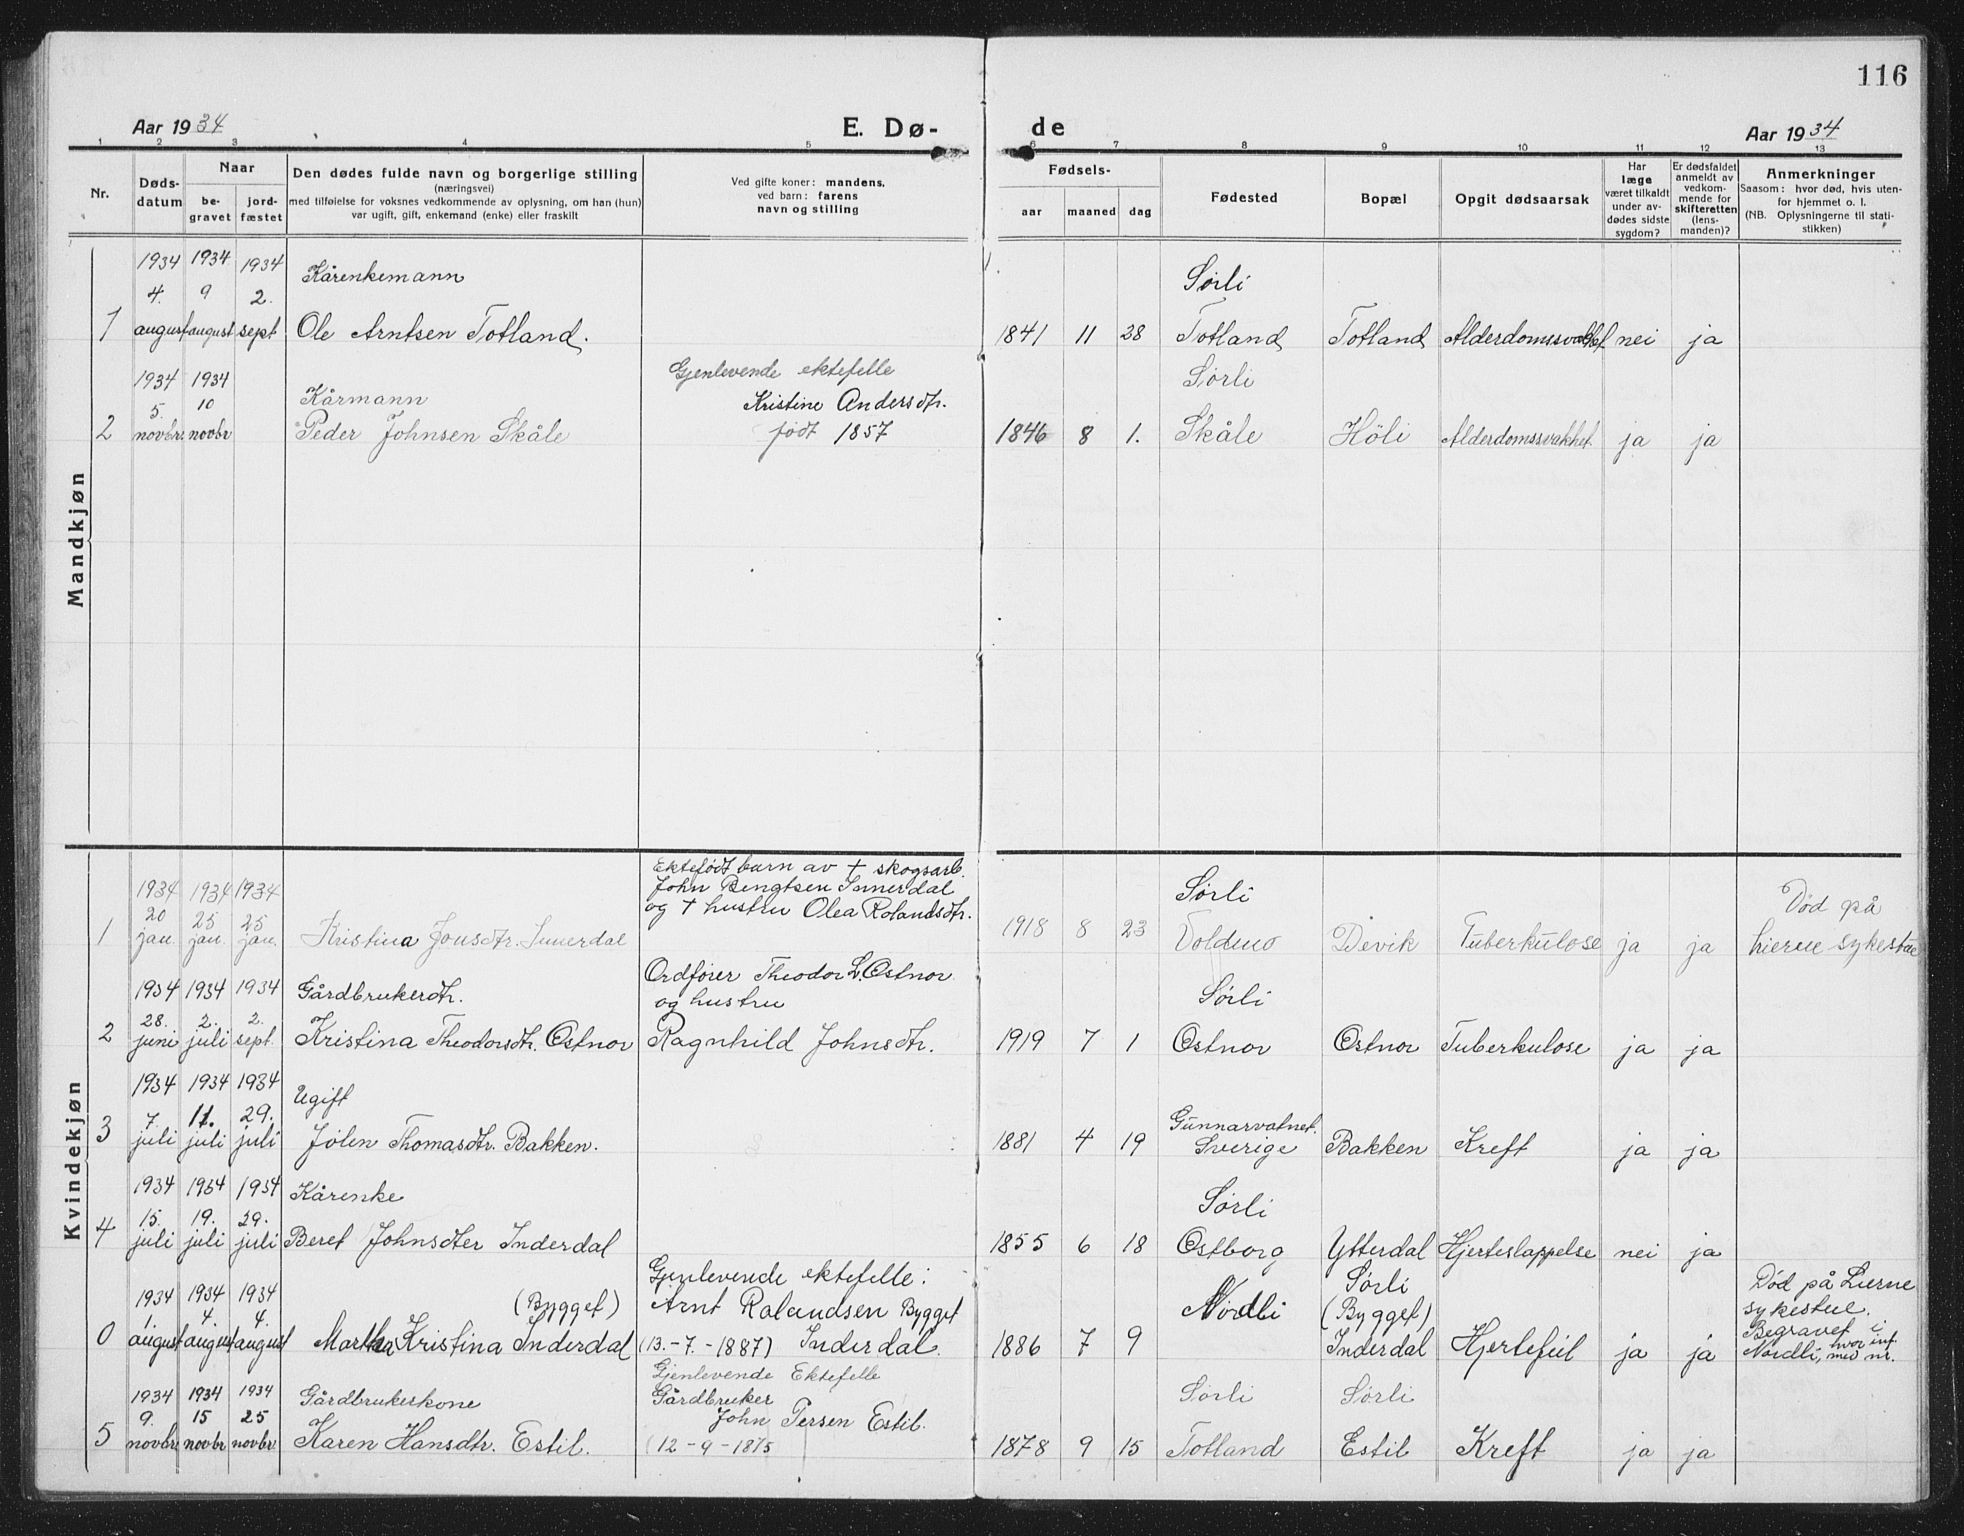 116
Aar 1934
E. Dø-
de
Aar 1934
1 2 3 4 5 6 7 8 9 10 11 12 13
Nr.
Døds-
datum
Naar
be-
gravet
jord-
fæstet
Den dødes fulde navn og borgerlige stilling
(næringsvei)
med tilføielse for voksnes vedkommende av oplysning, om han (hun)
var ugift, gift, enkemand (enke) eller fraskilt
Ved gifte koner: mandens,
ved barn: farens
navn og stilling
Fødsels-
aar
maaned
dag
Fødested
Bopæl
Opgit dødsaarsak
Har
læge
været tilkaldt
under av-
dødes sidste
sygdom?
Er dødsfaldet
anmeldt av
vedkom-
mende for
skifteretten
(lens-
manden)?
Anmerkninger
Saasom: hvor død, hvis uten-
for hjemmet o. l.
(NB. Oplysningerne til stati-
stikken)
Mandkjøn
1934 1934 1934 Kårenkemann Sørli
4. 9 2.
1 august august sept Ole Arntsen Totland. 1841 11 28 Totland Totland Alderdomssvakhet nei ja
1934 1934 Gjenlevende ektefelle Sørli
5. 10 Kårmann Kristine Andersdtr.
2 novbr. novbr Peder Johnsen Skåle født 1857 1846 8 1. Skåle Höli Alderdomssvakhet. ja ja
Kvindekjøn
Ektefødt barn av + skogsarb.
1934 1934 1934 John Bengtsen Innerdal Sørli Död på
20 25 25 og + hustru Olea Rolandsdtr.
1 jan. jan. jan. Kristina Jonsdtr. Innerdal 1918 8 23 Devik Tuberkulose ja ja
Ordfører Theodor L. Ostnor
1934 1934 1934 Gårdbrukerdtr. og hustru Sørli
28. 2. 2.
2 juni juli sept. Kristina Theodorsdtr. Ostnor Ragnhild Johnsdtr. 1919 7 1 Ostnor Ostnor Tuberkulose ja ja
1934 1934 1934 Ugift
7. 11. 29. Gunnarvatnet.
3 juli juli juli Jølen Thomasdtr. Bakken. 1881 4 19 Sverige Bakken Kreft ja ja
1934 1934 1934 Kårenke Sørli
15. 19. 29.
4 juli juli juli Beret Johnsdtter Inderdal 1855 6 18 Ostborg Ytterdal Hjerteslappelse nei ja
Gjenlevende ektefelle: Sørli Død på Lierne
1934 1934 1934 (Bygget) Arnt Rolandsen Bygget Nordli (Bygget) sykestue.
1. 4. 4. Begravet i
0 august august august Martha Kristina Inderdal (13.-7.-1887) Inderdal. 1886 7 9 Inderdal Hjertefeil ja ja Nordli, hvor inf.
med nr.
Gjenlevende Ektefelle
1934 1934 1934 Gårdbrukerskone Gårdbruker Sørli Sørli
9. 15 25 John Persen Estil.
5 novbr. novbr. novbr. Karen Hansdtr. Estil. (12-9-1875 1878 9 15 Totland Estil Kreft ja ja